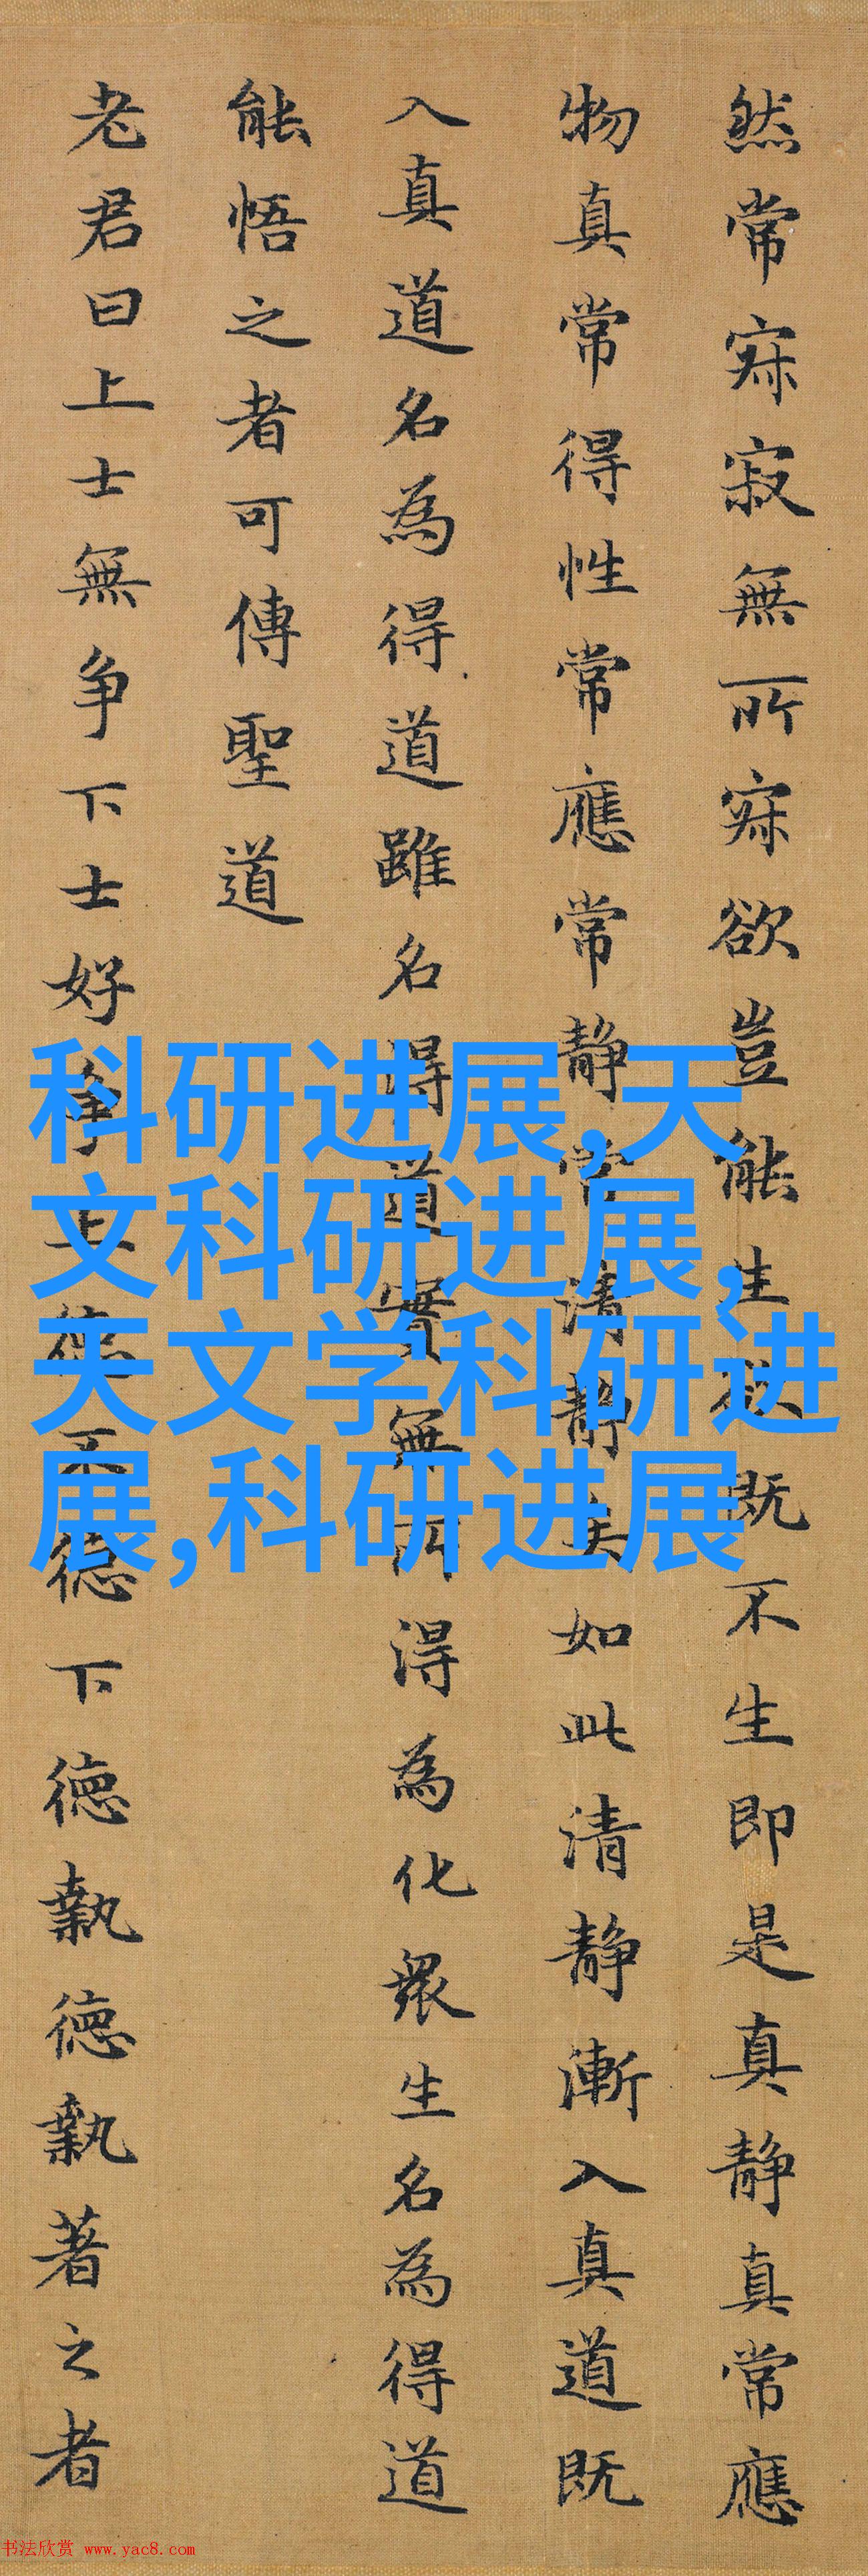 然常寂寂無所寂欲豈能生欲既不生即是真靜真常應
物真常得性常應常靜常清靜矣如此清靜漸入真道既
入真道名為得道雖名得道實無所得為化眾生名為得道
能悟之者可傳聖道
老君曰上士無争下士好争上德不德下德執德執著之者
科研进展,天
文科研进展,
天文学科研进
展,科研进展
书法欣赏 www.yac8.com